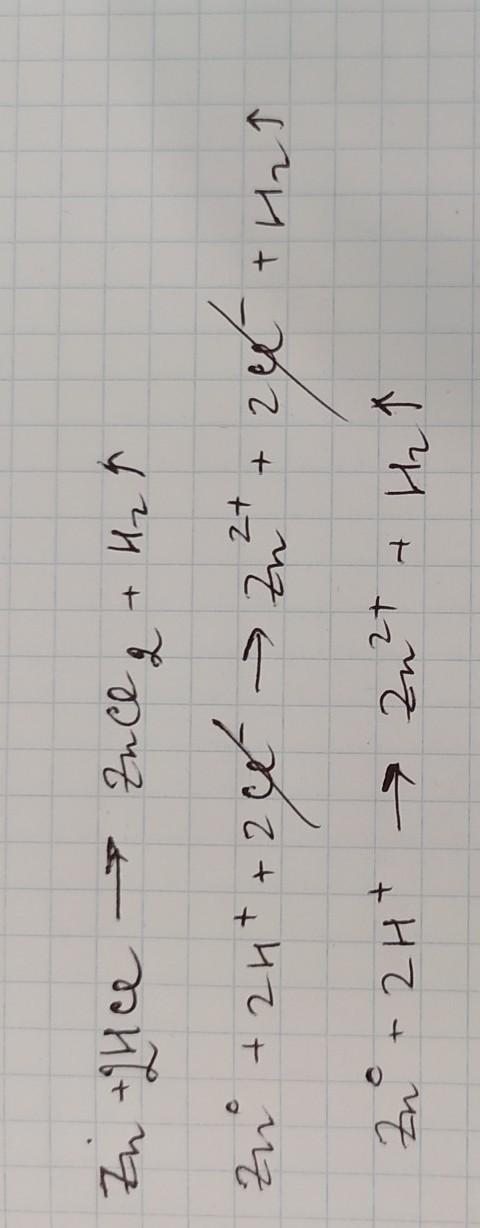 Zn + 2HCl → ZnCl₂ + H₂↑
Zn⁰ + 2H⁺ + 2Cl⁻ → Zn²⁺ + 2Cl⁻ + H₂↑
Zn⁰ + 2H⁺ → Zn²⁺ + H₂↑